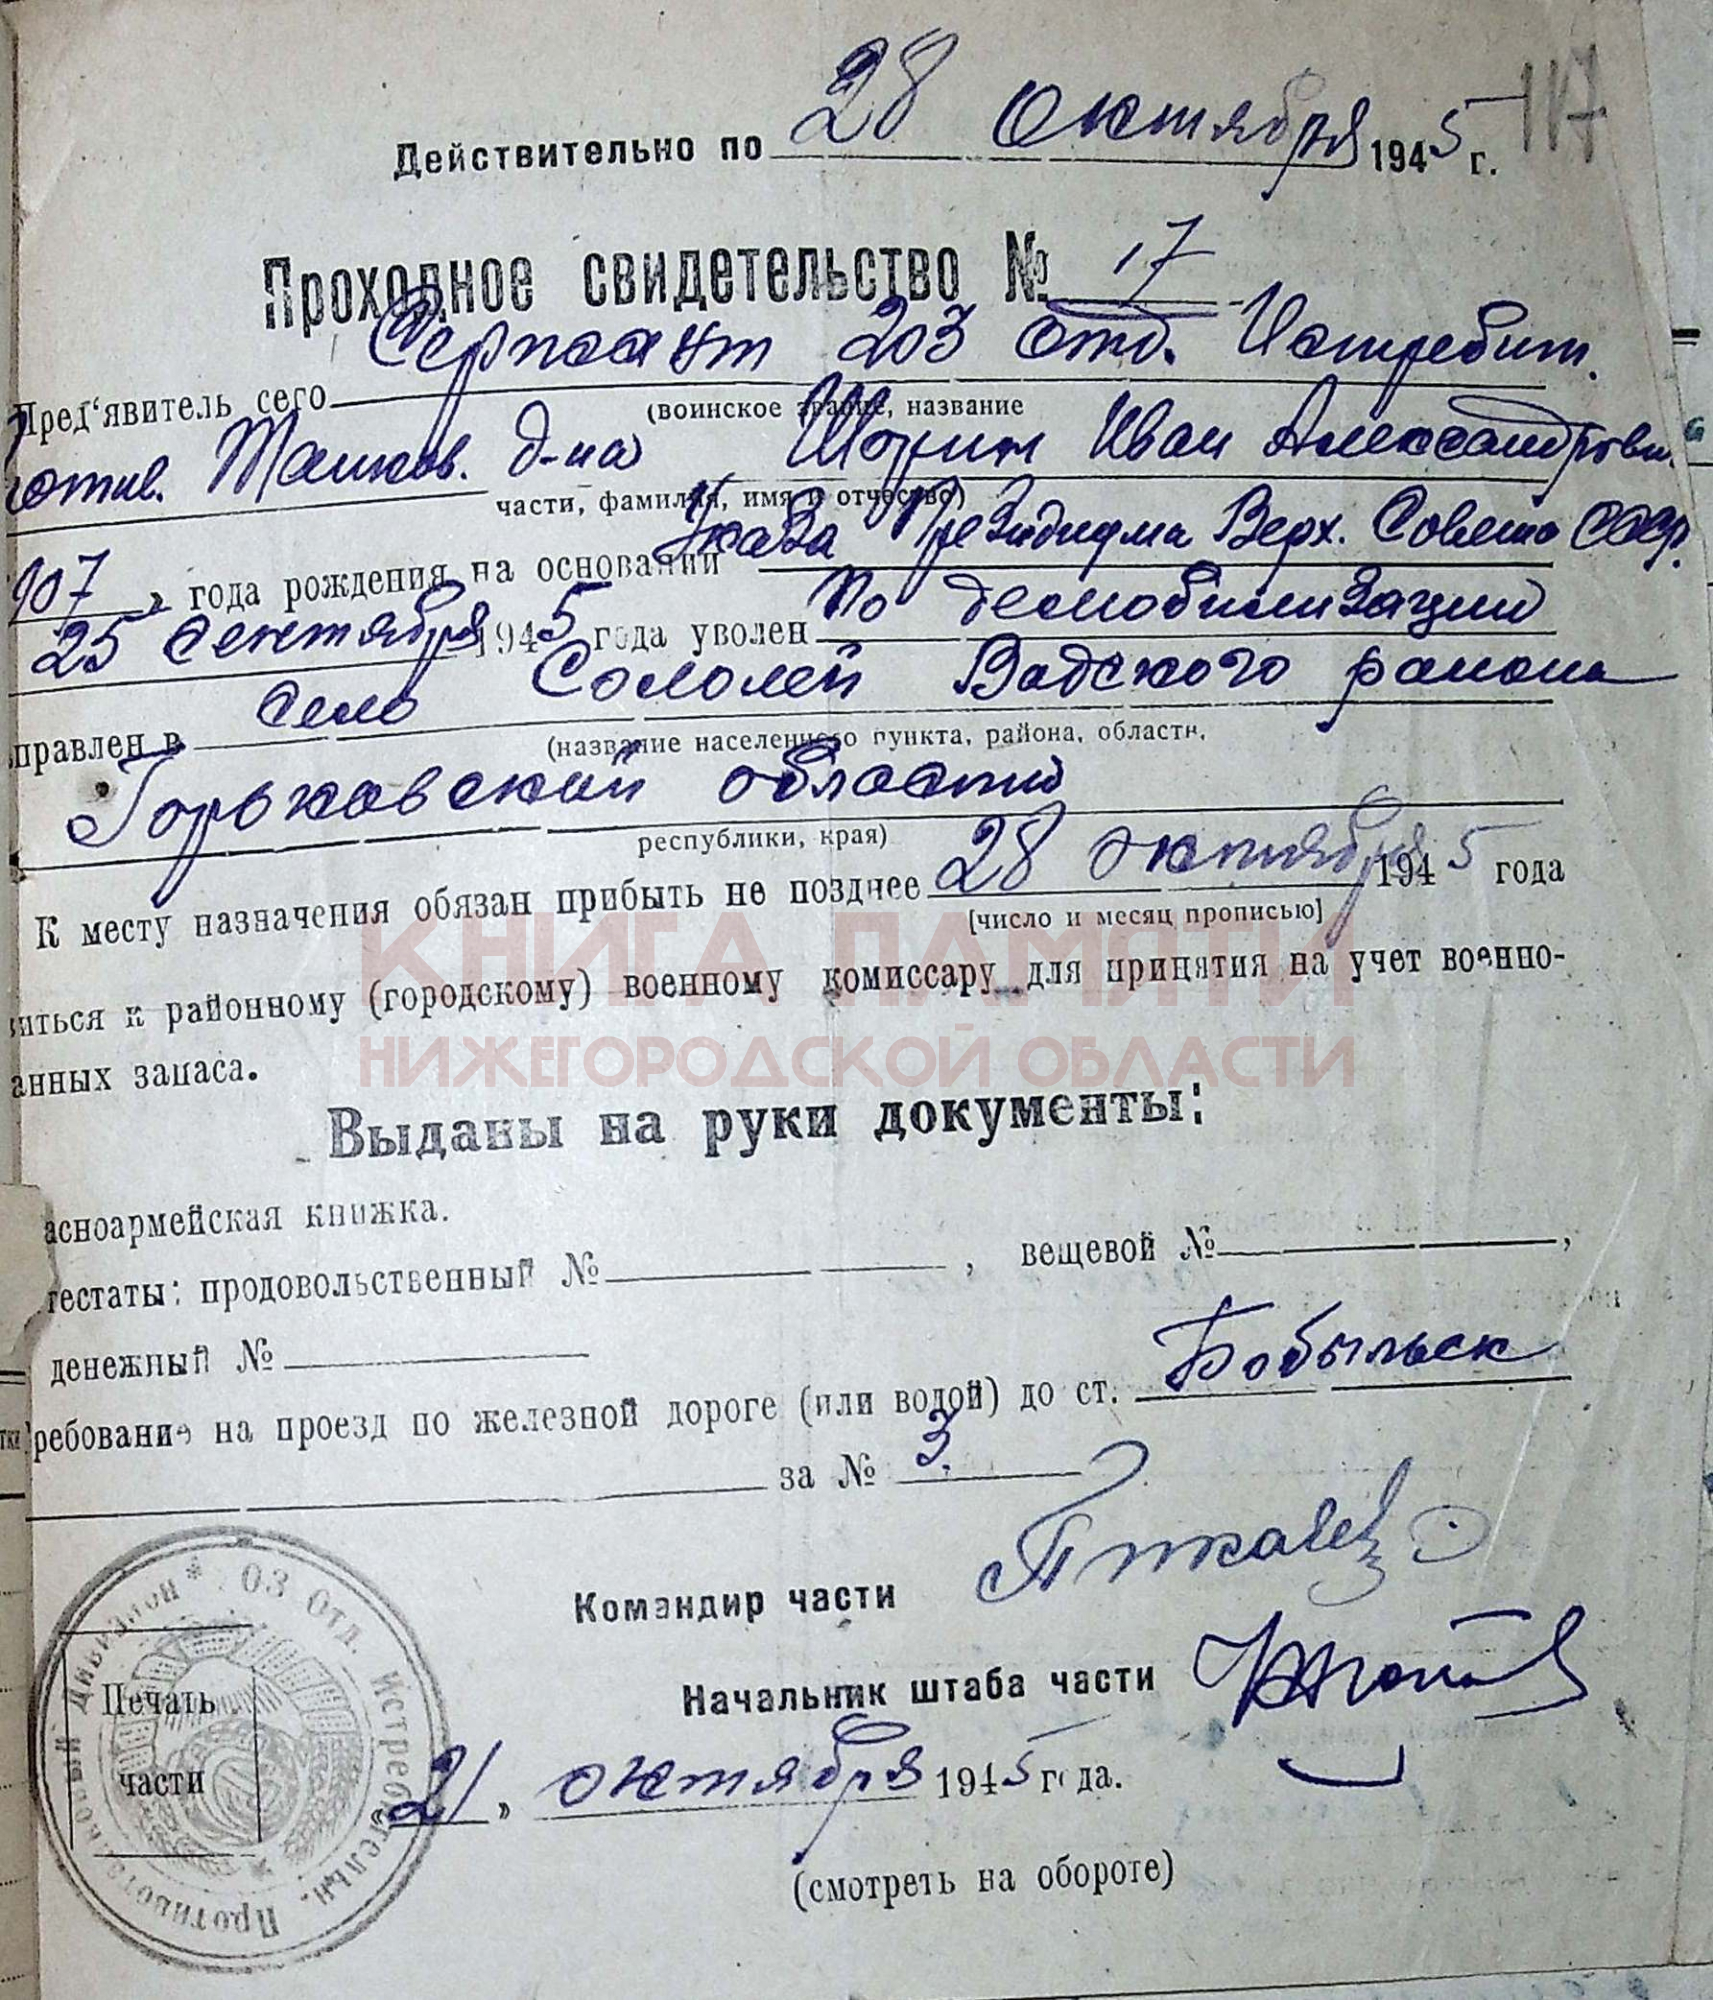 117
Действительно по 28 октября 1945 г.
Проходное свидетельство № 17
Пред'явитель сего Сержант 203 отд. Истребит.
(воинское звание, название
ротив. Танков. д-на Шорин Иван Александрови
части, фамилия, имя и отчество)
907 » года рождения на основании Указа Президиума Верх. Совета СССР.
25 сентября 1945 года уволен по демобилизации
правлен в село Сололей Вадского района
(название населенного пункта, района, области,
Горьковский области
республики, края)
К месту назначения обязан прибыть не позднее 28 октября 1945 года
[число и месяц прописью]
виться к районному (городскому) военному комиссару для принятия на учет военно-
анных запаса.
КНИГА ПАМЯТИ
НИЖЕГОРОДСКОЙ ОБЛАСТИ
Выданы на руки документы:
асноармейская книжка.
тестаты: продовольственный № , вещевой № ,
денежный №
ребование на проезд по железной дороге (или водой) до ст. Бобыльск
за № 3.
Командир части
Начальник штаба части
Печать
части
03 Отд. Истребительн. Противотанковый Дивизион *
«21» октября 1945 года.
(смотреть на обороте)